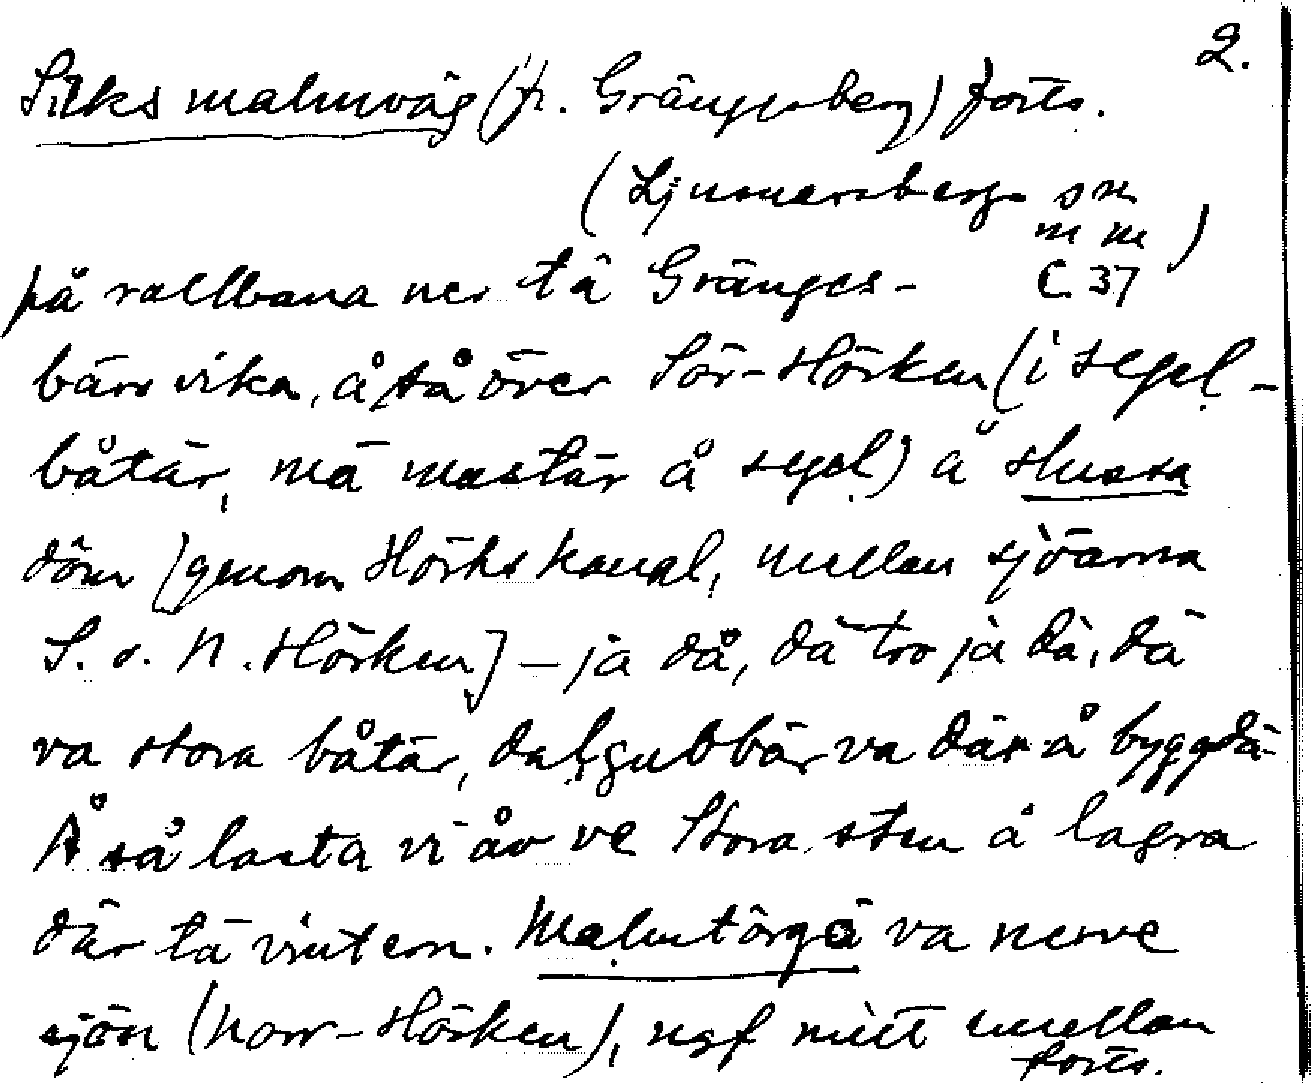 2.
Silks malmväg (fr. Grängesberg) forts.
(Ljusnarsbergs sn
m m)
på rallbana ner tä Gränges- C. 37
bärs vika, å så över Sör-Hörken (i segel-
båtär, mä mastär å segel) å slussa
döm [genom Hörks kanal, mellan sjöarna
S. o. N. Hörken] – ja då, dä tro ja dä, dä
va stora båtär, dalgubbär va där å byggdä.
Å så lasta vi åv ve Stora sten å lagra
där tä vintern. Malmtörgä va nerve
sjön (Norr-Hörken), ngf mitt emellan
forts.